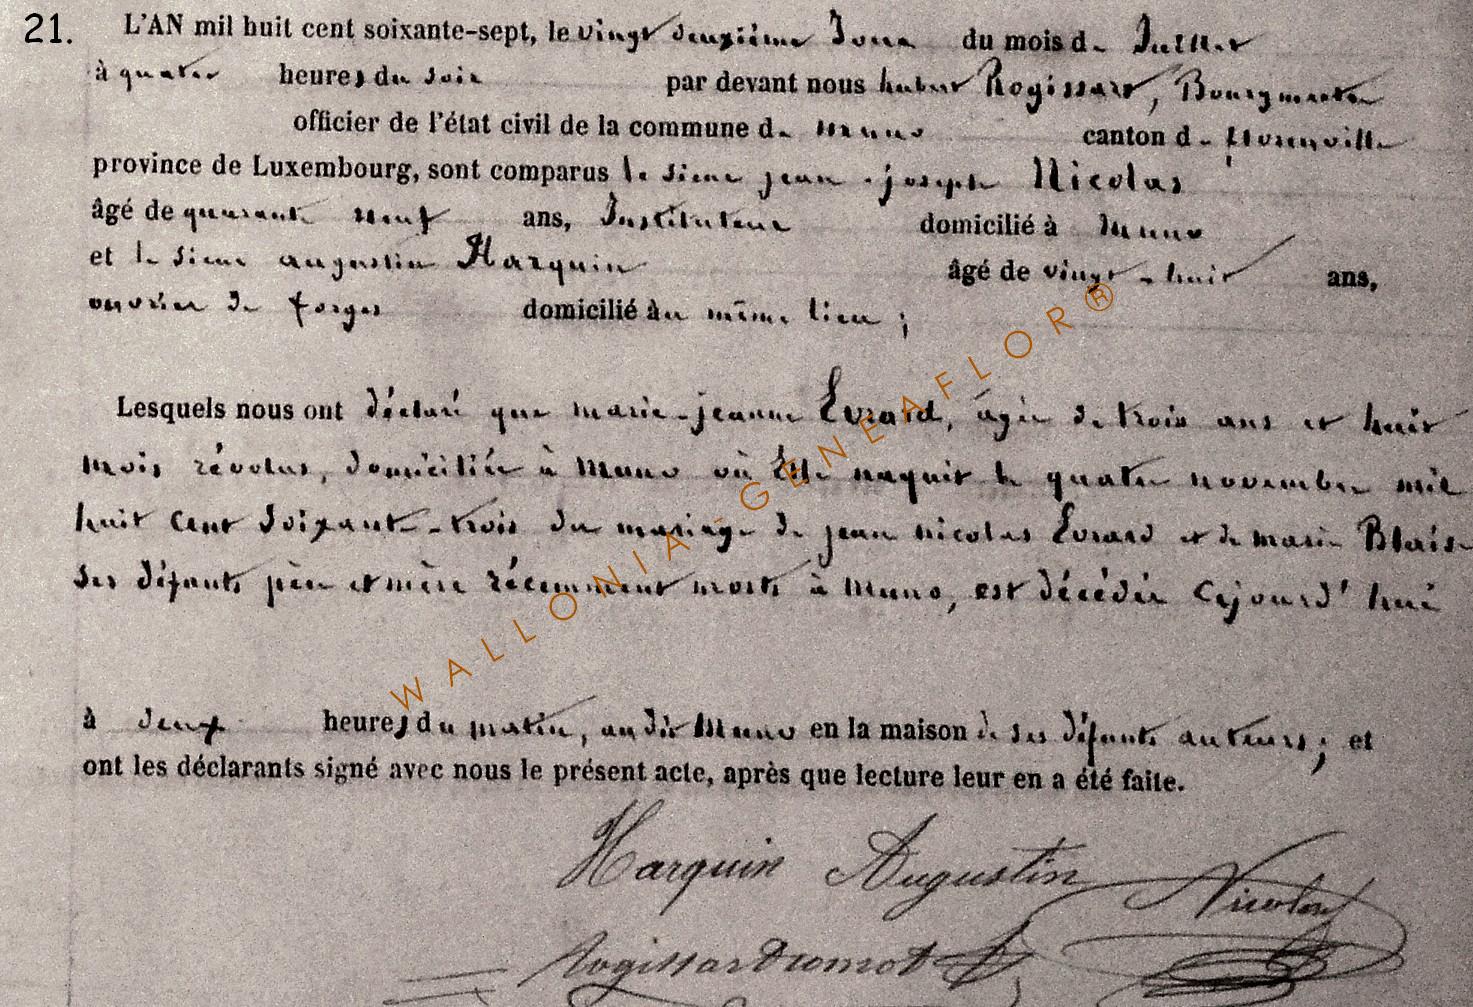 21. L'AN mil huit cent soixante-sept, le vingt deuxième Jour du mois de Juillet
à quatre heures du soir par devant nous hubert Rogissart, Bourgmestre
officier de l'état civil de la commune de muno canton de florenville
province de Luxembourg, sont comparus le sieur jean-joseph Nicolas
âgé de quarante neuf ans, Instituteur domicilié à muno
et le sieur augustin Harquin âgé de vingt-huit ans,
ouvrier de forges domicilié au même lieu ;
Lesquels nous ont déclaré que marie-jeanne Evrard, âgée de trois ans et huit
mois révolus, domiciliée à muno où Elle naquit le quatre novembre mil
huit cent soixante-trois du mariage de jean nicolas Evrard et de marie Blaise
ses défunts père et mère récemment morts à muno, est décédée cejourd'hui
à deux heures du matin, au dit Muno en la maison de ses défunts auteurs ; et
ont les déclarants signé avec nous le présent acte, après que lecture leur en a été faite.
Harquin Augustin Nicolas
Rogissart Dumont
WALLONIA-GENEAFLOR®